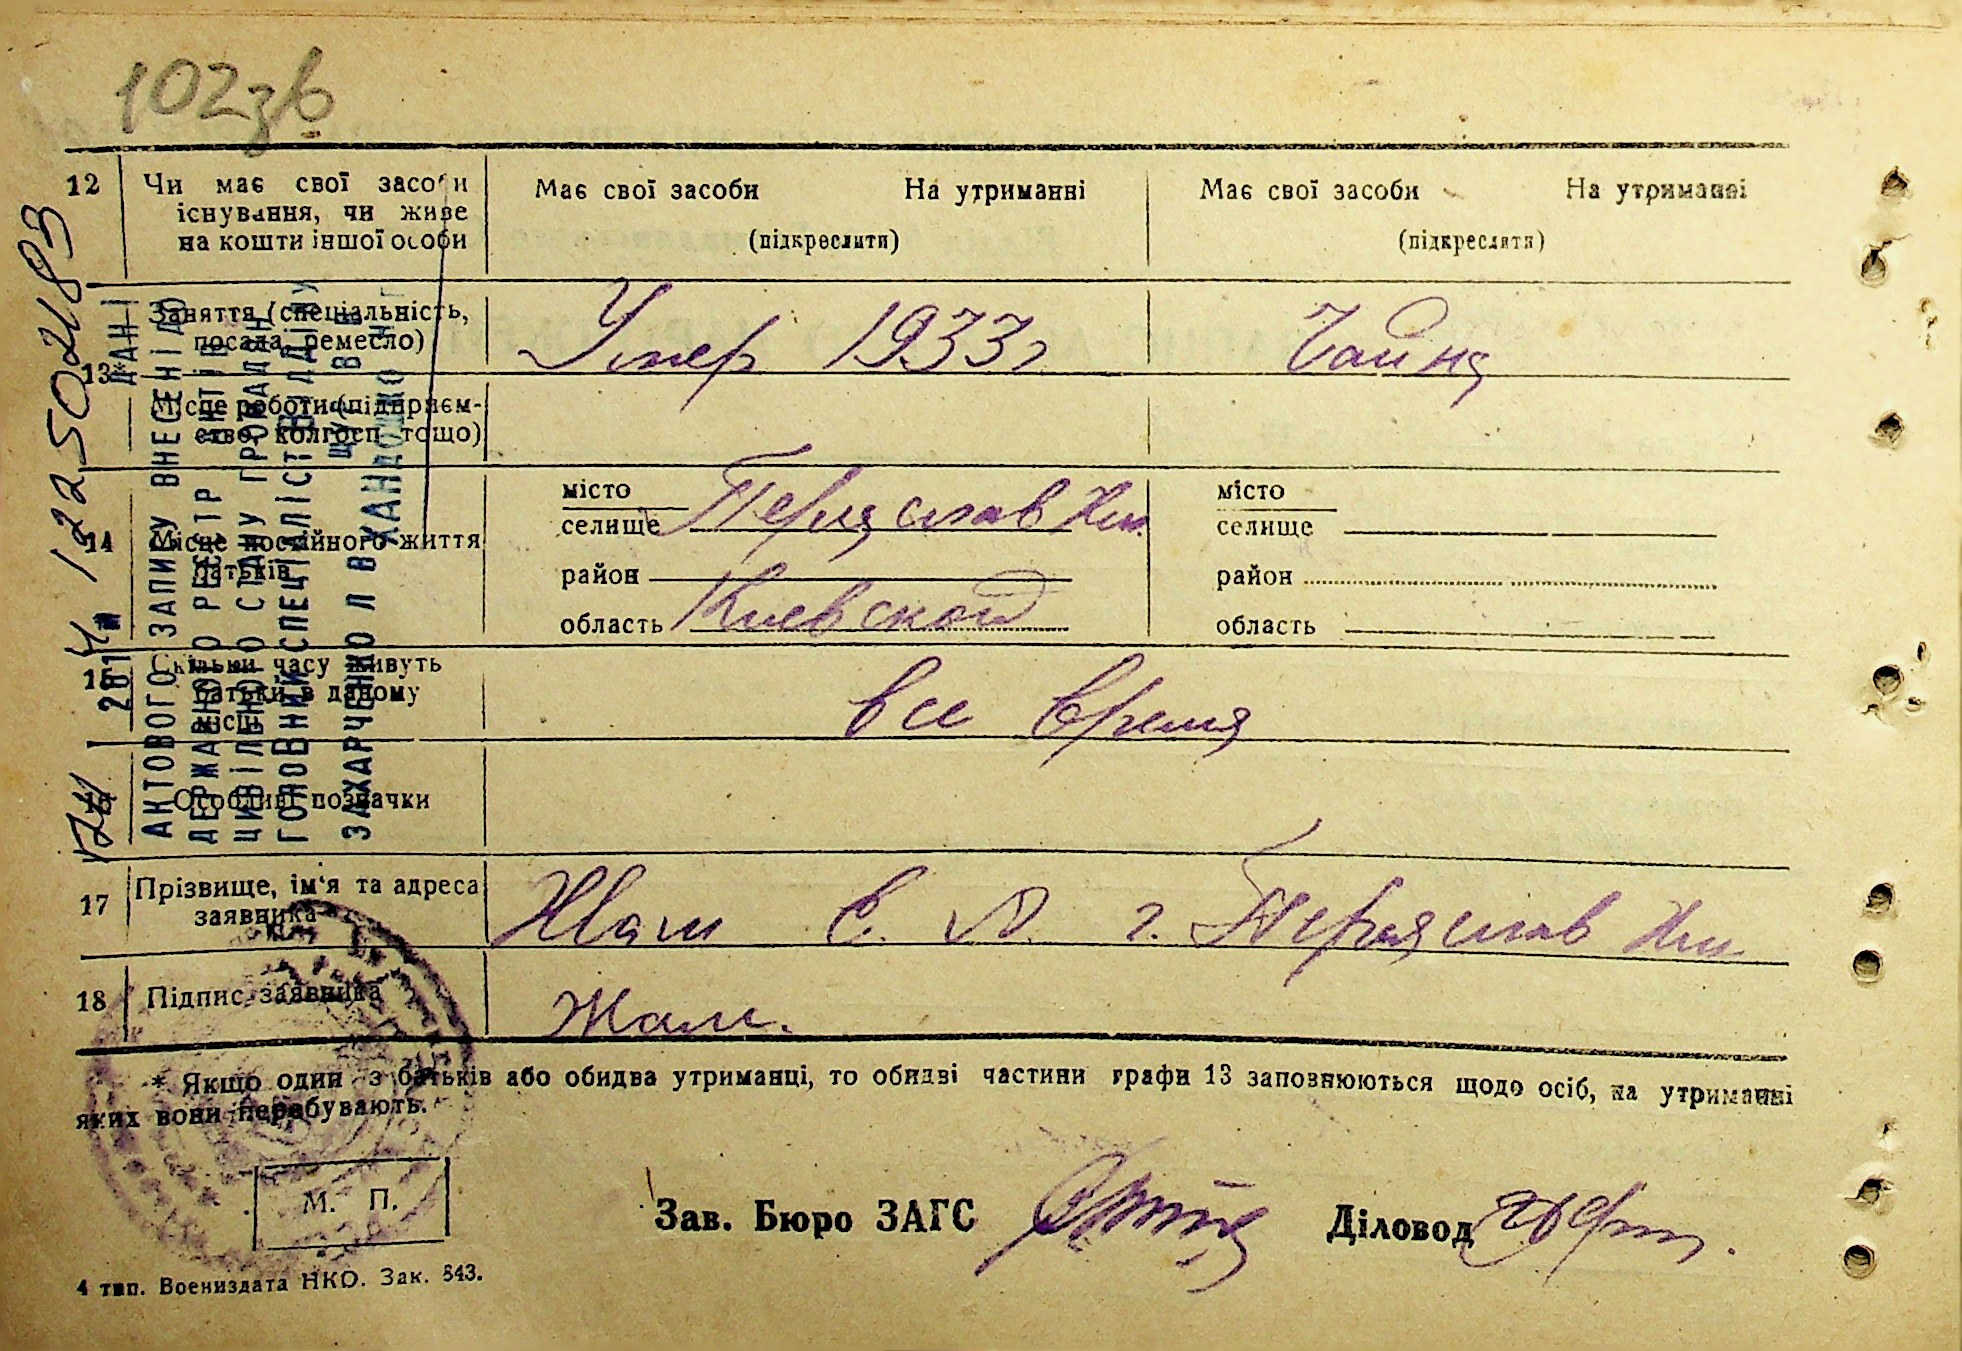 102зв
12 Чи має свої засоби Має свої засоби На утриманні Має свої засоби На утриманні
існування, чи живе
на кошти іншої особи (підкреслити) (підкреслити)
13* Заняття (спеціальність, Умер 1933г
посада, ремесло)
Місце роботи (підприєм-
ство, колгосп тощо)
14 Місце постійного життя
батьків
місто Переяслав Хм. місто
селище селище
район район
область Киевской область
15 Скільки часу живуть все время
батьки в даному
місці
Особливі позначки
17 Прізвище, ім'я та адреса г. Переяслав Хм
заявника
18 Підпис заявника
* Якщо один з батьків або обидва утриманці, то обидві частини графи 13 заповнюються щодо осіб, на утриманні
яких вони перебувають.
М. П.
Зав. Бюро ЗАГС Діловод
4 тип. Воениздата НКО. Зак. 843.
ДАНІ
АКТОВОГО ЗАПИСУ ВНЕСЕНІ ДО
ДЕРЖАВНОГО РЕЄСТР
ЦИВІЛЬНОГО СТАНУ ГРОМАДЯН
ГОЛОВНИЙ СПЕЦІАЛІСТ ВІДДІЛУ
ЗАХАРЧЕНКО Л В